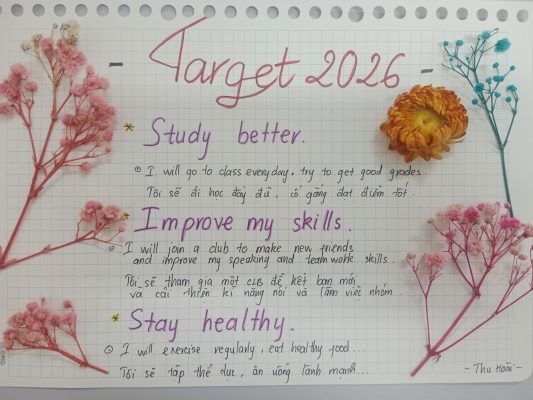 - Target 2026 -
* Study better.
I will go to class everyday, try to get good grades.
Tôi sẽ đi học đầy đủ, cố gắng đạt điểm tốt.
* Improve my skills.
I will join a club to make new friends
and improve my speaking and teamwork skills.
Tôi sẽ tham gia một CLB để kết bạn mới
và cải thiện kĩ năng nói và làm việc nhóm.
* Stay healthy.
I will exercise regularly, eat healthy food...
Tôi sẽ tập thể dục, ăn uống lành mạnh...
- Thu Hoài -